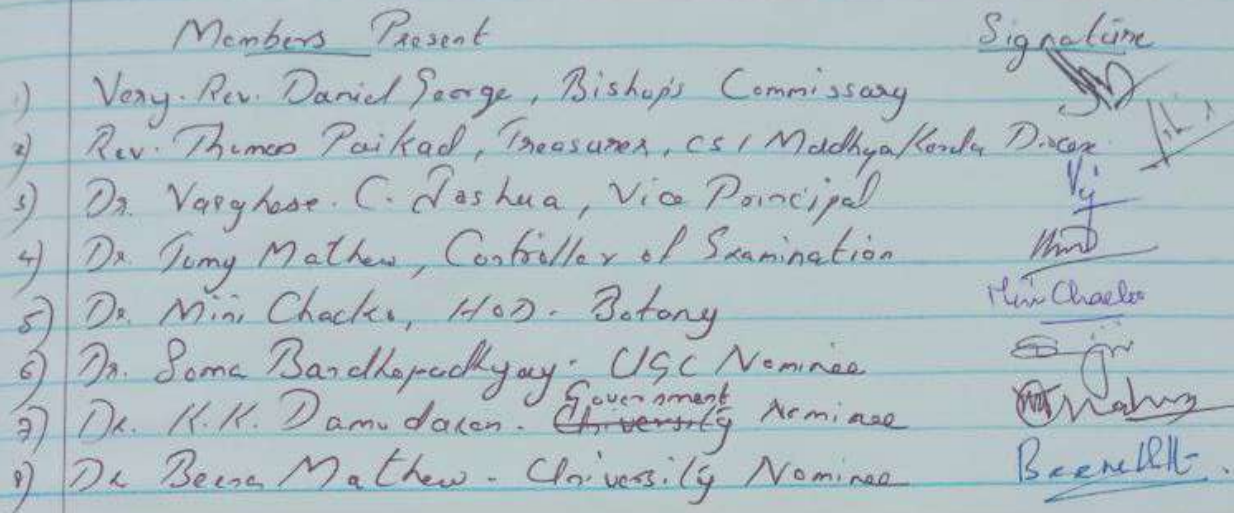 Members Present Signature
1) Very. Rev. Daniel George, Bishop's Commissary
2) Rev. Thomas Paikad, Treasurer, CSI Madhya Kerala Diocese
3) Dr. Varghese. C. Joshua, Vice Principal
4) Dr Tomy Mathew, Controller of Examination
5) Dr. Mini Chacko, HOD. Botany Mini Chacko
6) Dr. Soma Bandhopadhyay. UGC Nominee
Government
7) Dr. K.K. Damodaran. University Nominee
8) Dr Beena Mathew - University Nominee